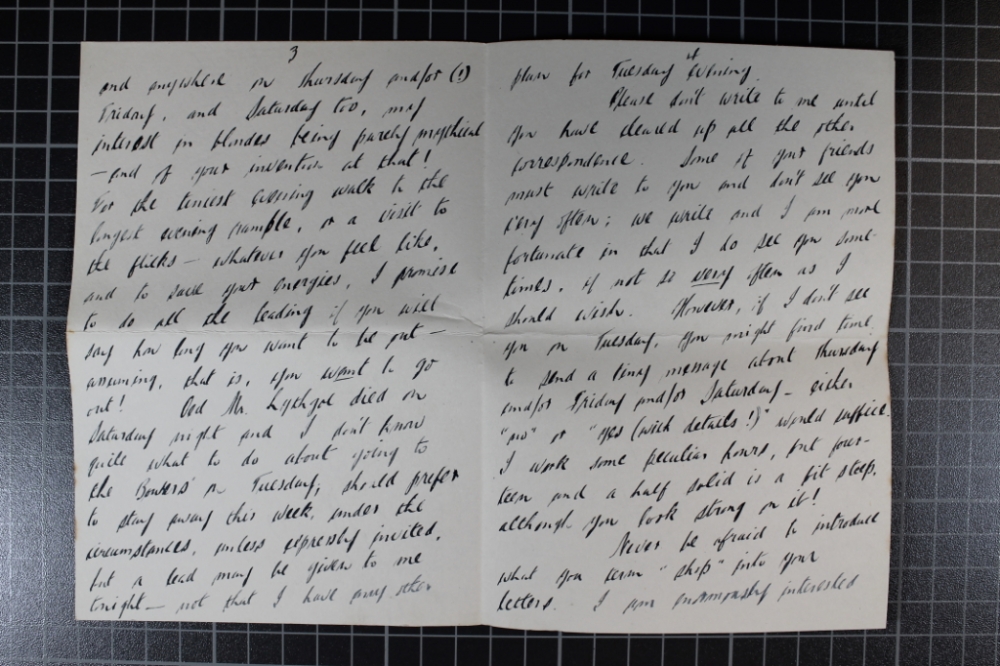 3
and anywhere on Thursday and/or (!)
Friday, and Saturday too, my
interest in blondes being purely mythical
— and of your invention at that!
For the tiniest evening walk to the
longest evening ramble, or a visit to
the flicks — whatever you feel like,
and to save your energies, I promise
to do all the leading if you will
say how long you want to be out —
assuming, that is, you want to go
out! Old Mr. Lythgoe died on
Saturday night and I don't know
quite what to do about going to
the Bowers' on Tuesday, should prefer
to stay away this week, under the
circumstances, unless expressly invited,
but a lead may be given to me
tonight — not that I have any other
plan for Tuesday evening.
Please don't write to me until
you have cleared up all the other
correspondence. Some of your friends
must write to you and don't see you
very often; we write and I am more
fortunate in that I do see you some-
times, if not so very often as I
should wish. However, if I don't see
you on Tuesday, you might find time
to send a tiny message about Thursday
and/or Friday and/or Saturday — either
"no" or "yes (with details!)" would suffice.
I work some peculiar hours, but four-
teen and a half solid is a bit steep,
although you look strong on it!
Never be afraid to introduce
what you term "shop" into your
letters. I am enormously interested